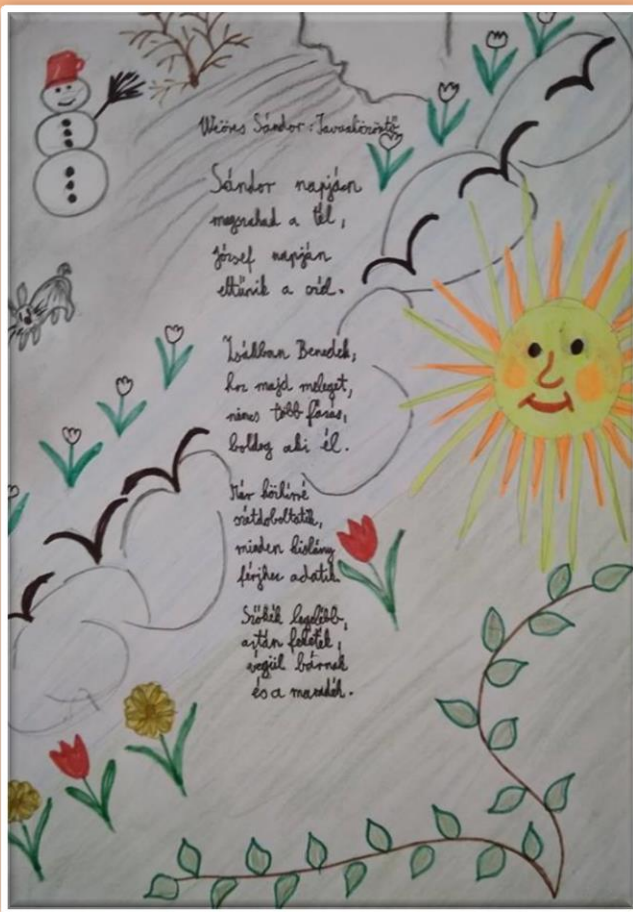 Weöres Sándor: Tavaszköszöntő
Sándor napján
megszakad a tél,
József napján
eltűnik a szél.
Zsákban Benedek,
hoz majd meleget,
nincs több fázás,
boldog aki él.
Már közhírré
szétdoboltatik,
minden kislány
férjhez adatik.
Szőkék legelébb,
aztán feketék,
végül barnák
és a maradék.